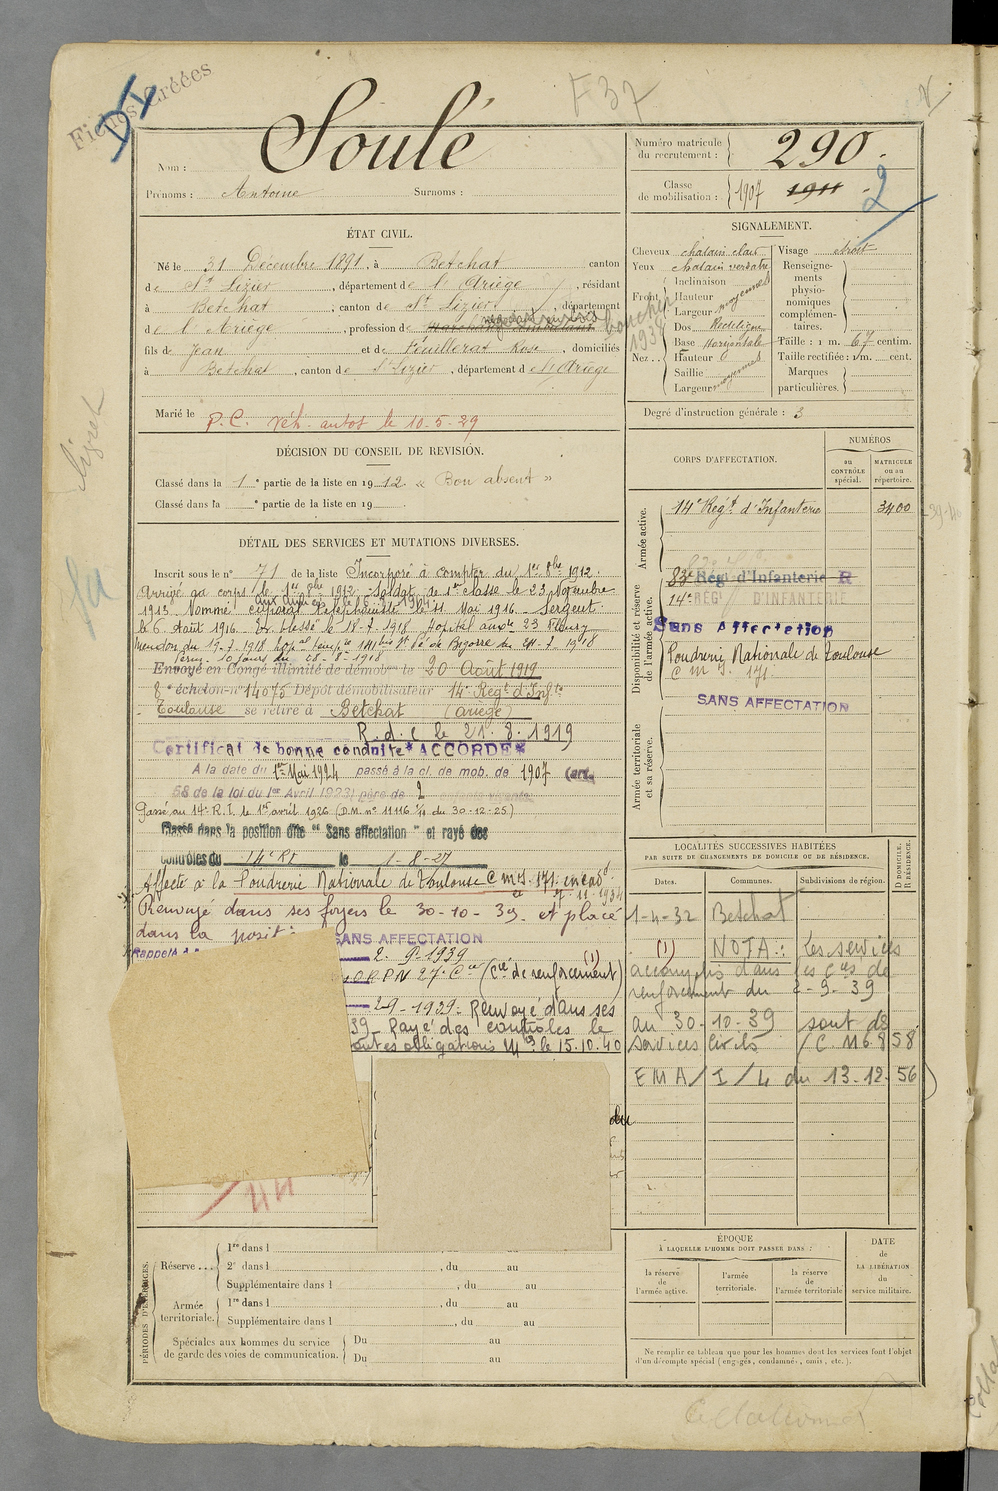 Fiches Créées
D I
F 37
Nom : Soulé
Prénoms : Antoine Surnoms :
Numéro matricule du recrutement : 290
Classe de mobilisation : 1907 1911
2
ÉTAT CIVIL.
Né le 31 Décembre 1891, à Betchat canton
de St Lizier, département de l'Ariège, résidant
à Betchat, canton de St Lizier, département
de l'Ariège, profession de boucher
1938
fils de Jean et de Feuillerat Rose, domiciliés
à Betchat, canton de St Lizier, département d l'Ariège
Marié le
P.C. véh. autos le 10-5-29
SIGNALEMENT.
Cheveux chatain clair Visage étroit
Yeux chatain verdatre
Front Inclinaison
Hauteur moyennes
Largeur
Nez Dos Rectiligne
Base Horizontale
Hauteur
Saillie moyennes
Largeur
Renseignements physionomiques complémentaires.
Taille : 1 m. 67 centim.
Taille rectifiée : 1m. cent.
Marques particulières.
Degré d'instruction générale : 3
DÉCISION DU CONSEIL DE REVISION.
Classé dans la 1e partie de la liste en 1912 « Bon absent »
Classé dans la e partie de la liste en 19
CORPS D'AFFECTATION.
NUMÉROS
au CONTRÔLE spécial.
MATRICULE ou au répertoire.
Armée active.
14e Regt d'Infanterie 3400
Disponibilité et réserve de l'armée active.
83e Régt d'Infanterie R
14e RÉGt D'INFANTERIE
Sans Affectation
Poudrerie Nationale de Toulouse
C m J. 171.
SANS AFFECTATION
Armée territoriale et sa réserve.
DÉTAIL DES SERVICES ET MUTATIONS DIVERSES.
Inscrit sous le n° 71 de la liste Incorporé à compter du 1er 8bre 1912.
Arrivé au corps le 1er 8bre 1912. Soldat de 1ère classe le 23 Novembre
1913. Nommé caporal le 11 Mai 1916 Sergent
le 6 Aout 1916. blessé le 18-7-1918 Hopital 23 Fleury
Meudon du 19-7-1918
Perm. 10 jours du 28-8-1918
Envoyé en Congé illimité de démobon le 20 Août 1919
8e échelon n° 14075 Dépôt démobilisateur 14e Regt d'Infie
Toulouse se retire à Betchat (Ariège)
R.d.C le 21.8.1919
Certificat de bonne conduite "ACCORDÉ"
A la date du 1er Mai 1924 passé à la cl. de mob. de 1907 (art.
58 de la loi du 1er Avril 1923) père de 2 enfants vivants
Passé au 14e R.I. le 1er avril 1926 (D.M. n° 11116 1/10 du 30-12-25)
Classé dans la position dite " Sans affectation " et rayé des
contrôles du 14e RI le 1-8-27
Affecté à la Poudrerie Nationale de Toulouse C m J. 171. en cad
7.11.1934
Renvoyé dans ses foyers le 30-10-39 et placé
dans la posit
SANS AFFECTATION
Rappelé à
2. 9. 1939
27e Cie (Cie de renforcement) (1)
2-9-1939. Renvoyé dans ses
39 Rayé des contrôles le
outes obligations Mres le 15.10.40
du
44
LOCALITÉS SUCCESSIVES HABITÉES
PAR SUITE DE CHANGEMENTS DE DOMICILE OU DE RÉSIDENCE.
Dates. Communes. Subdivisions de région. D DOMICILE. R RÉSIDENCE.
1-4-32 Betchat
(1) NOTA : Les services
accomplis dans les Cies de
renforcement du 2-9-39
au 30-10-39 sont des
services civils /C 116858
EMA/I/4 du 13.12.56
PÉRIODES D'EXERCICES.
Réserve...
1re dans l
2e dans l , du au
Supplémentaire dans l , du au
Armée territoriale.
1re dans l , du au
Supplémentaire dans l , du au
Spéciales aux hommes du service de garde des voies de communication.
Du au
Du au
ÉPOQUE
À LAQUELLE L'HOMME DOIT PASSER DANS :
la réserve de l'armée active.
l'armée territoriale.
la réserve de l'armée territoriale
DATE de LA LIBÉRATION du service militaire.
Ne remplir ce tableau que pour les hommes dont les services font l'objet
d'un décompte spécial (engagés, condamnés, omis, etc.).
Collationné